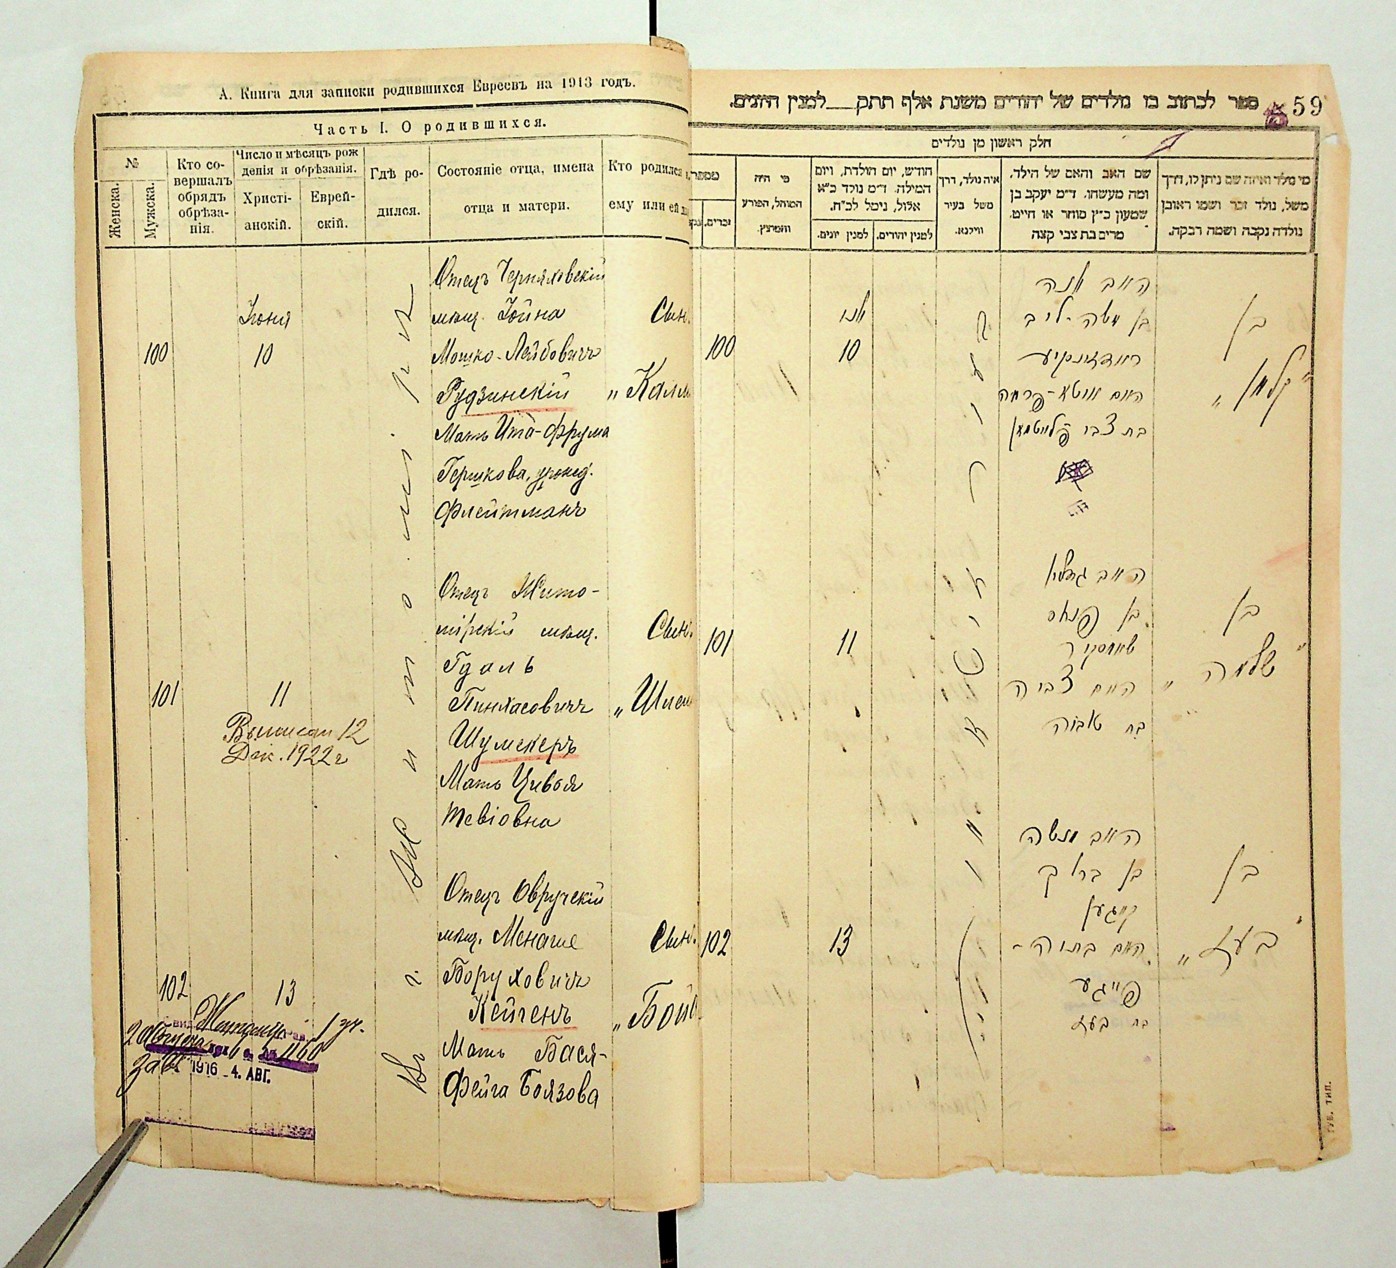 А. Книга для записки родившихся Евреевъ на 1913 годъ.
Часть I. О родившихся.
№
Женска.
Мужска.
Кто со-
вершалъ
обрядъ
обрѣза-
нія.
Число и мѣсяцъ рож
денія и обрѣзанія.
Христі-
анскій.
Еврей-
скій.
Гдѣ ро-
дился.
Состояніе отца, имена
отца и матери.
Кто родился
ему или ей
Въ г. Житомірѣ
100
Іюня
10
Отецъ Черняховскій
мѣщ. Іойна
Мошко-Лейбовичъ
Рудзинскій
Мать Ита-Фрума
Гершкова, урожд.
Флейтманъ
Сынъ.
„Калм
101
11
Выписан 12
Дек. 1922 г
Отецъ Жито-
мірскій мѣщ.
Гдаль
Пинхасовичъ
Шумскеръ
Мать Цивья
Тевіовна
Сынъ.
„Шлем
102
13
2 Августа
1916 4. АВГ.
Отецъ Овручскій
мѣщ. Менаше
Боруховичъ
Кейгенъ
Мать Бася-
Фейга Боязова
Сынъ.
„Бойз
59
ספר לכתוב בו נולדים של יהודים משנת אלף תתק__למנין היונים.
חלק ראשון מן נולדים
מי נולד ואיזה שם ניתן לו, דרך
משל, נולד זכר ושמו ראובן
נולדה נקבה ושמה רבקה.
שם האב והאם של הילד,
ומה מעשהו. ד״מ יעקב בן
שמעון כ״ץ סוחר או חייט.
מרים בת צבי קצה
איה נולד, דרך
משל בעיר
ווילנא.
חודש, יום הולדת, ויום
המילה. ד״מ נולד כ״א
אלול, נימול לכ״ח.
למנין יהודים.
למנין יונים.
מי היה
המוהל, הפורע
והמוצץ.
מספר
זכרים.
בן
„קלמן”
האב יונה
בן משה-ליב
רודזינסקי
האם איטא-פרומה
בת צבי פלייטמאן
יוני
10
100
בן
„שלמה”
האב גדליה
בן פנחס
שומסקיר
האם צביה
בת טוביה
11
101
בן
„בעז”
האב מנשה
בן ברוך
קייגען
האם בתיה-
פייגע
בת בעז
13
102
ГУБ. ТИП.